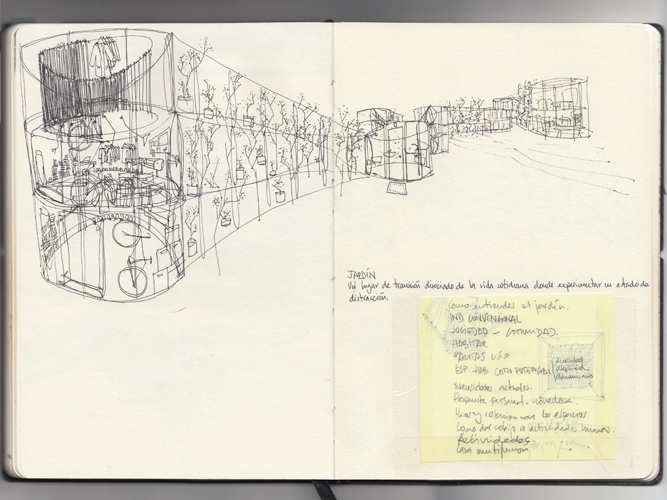 JARDÍN
Un lugar de transición disociado de la vida cotidiana donde experimentar un estado de
distracción.
Como entiendes el jardín.
IND CONVENCIONAL
SOCIEDAD - COMUNIDAD
HABITAR
PAUTAS USO
ESP COMO POTENCIAL
Necesidades actuales.
Propuesta personal. novedosa.
los espacios
Como dar cobijo a actividades
Actividades
Casa multifunción